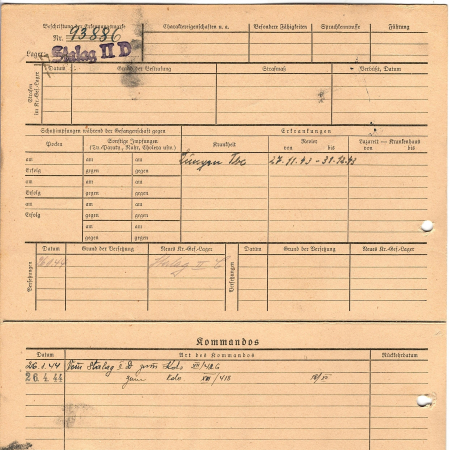 Beschriftung der Erkennungsmarke
Nr. 93886
Lager: Stalag II D
Charaktereigenschaften u. a.
Besondere Fähigkeiten
Sprachkenntnisse
Führung
Strafen im Kr.-Gef.-Lager
Datum
Grund der Bestrafung
Strafmaß
Verbüßt, Datum
Schutzimpfungen während der Gefangenschaft gegen
Erkrankungen
Pocken
Sonstige Impfungen
(Ty.-Paraty., Ruhr, Cholera usw.)
Krankheit
Revier
von bis
Lazarett — Krankenhaus
von bis
am am am
Erfolg gegen gegen
am am am
Erfolg gegen gegen
am am am
Erfolg gegen gegen
am am
gegen gegen
Lungen Tbc
27.11.43 – 31.12.43
Versetzungen
Datum
Grund der Versetzung
Neues Kr.-Gef.-Lager
Versetzungen
Datum
Grund der Versetzung
Neues Kr.-Gef.-Lager
Stalag II C
Kommandos
Datum
Art des Kommandos
Rückkehrdatum
26.1.44 Vom Stalag II D zum Kdo
26.4.44 zum Kdo XIII/413